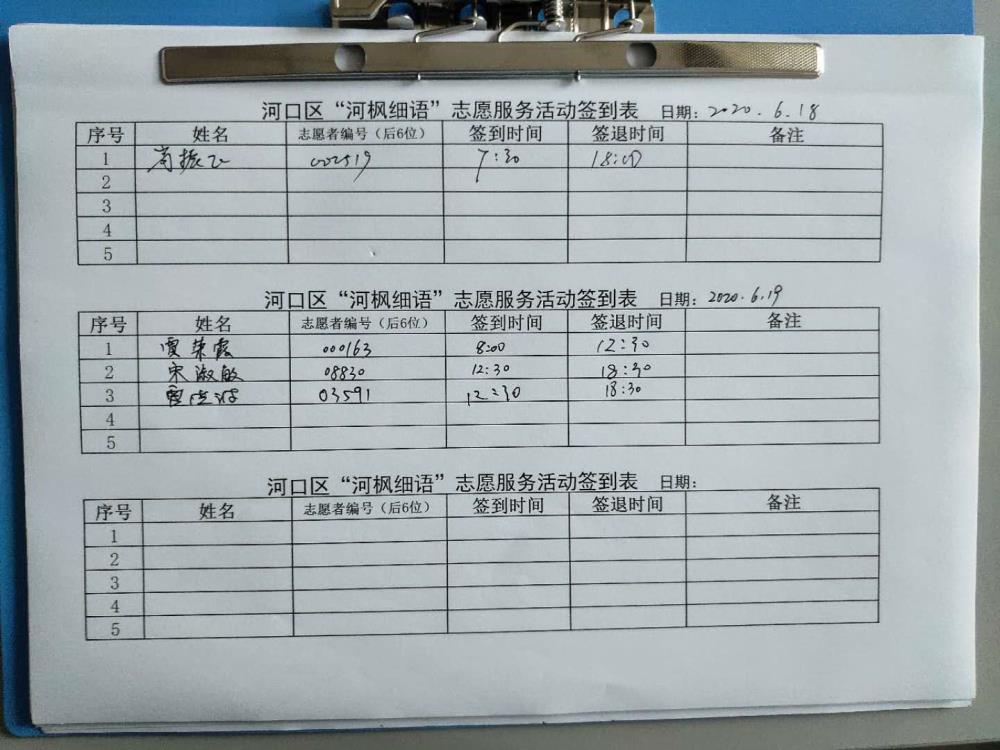 河口区“河枫细语”志愿服务活动签到表 日期：2020.6.18
序号 姓名 志愿者编号（后6位） 签到时间 签退时间 备注
1 振 002519 7:30 18:00
2
3
4
5
河口区“河枫细语”志愿服务活动签到表 日期：2020.6.19
序号 姓名 志愿者编号（后6位） 签到时间 签退时间 备注
1 贾荣霞 000163 8:00 12:30
2 宋淑敏 08830 12:30 18:30
3 03591 12:30 18:30
4
5
河口区“河枫细语”志愿服务活动签到表 日期：
序号 姓名 志愿者编号（后6位） 签到时间 签退时间 备注
1
2
3
4
5